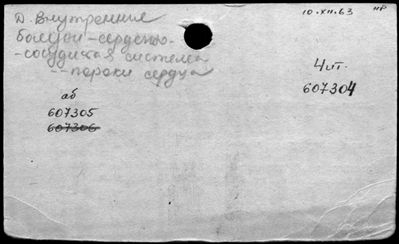 10.XII.63 НР
Д. Внутренние
болезни-сердечно-
-сосудистая система
--пороки сердца
4 ит.
607304
аб
607305
607306